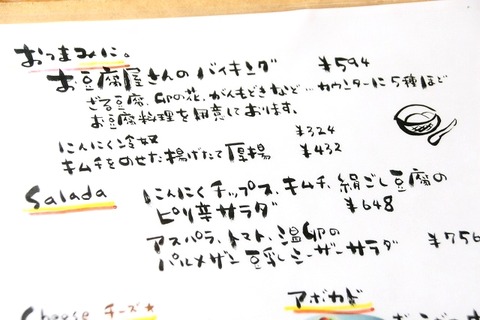 おつまみに。
お豆腐屋さんのバイキング ¥594
ざる豆腐、卯の花、がんもどきなど…カウンターに5種ほど
お豆腐料理を用意しております。
にんにく冷奴 ¥324
キムチをのせた揚げたて厚揚 ¥432
Salada
にんにくチップス、キムチ、絹ごし豆腐の
ピリ辛サラダ ¥648
アスパラ、トマト、温卵の
パルメザン豆乳シーザーサラダ ¥756
Cheese チーズ★
アボカド